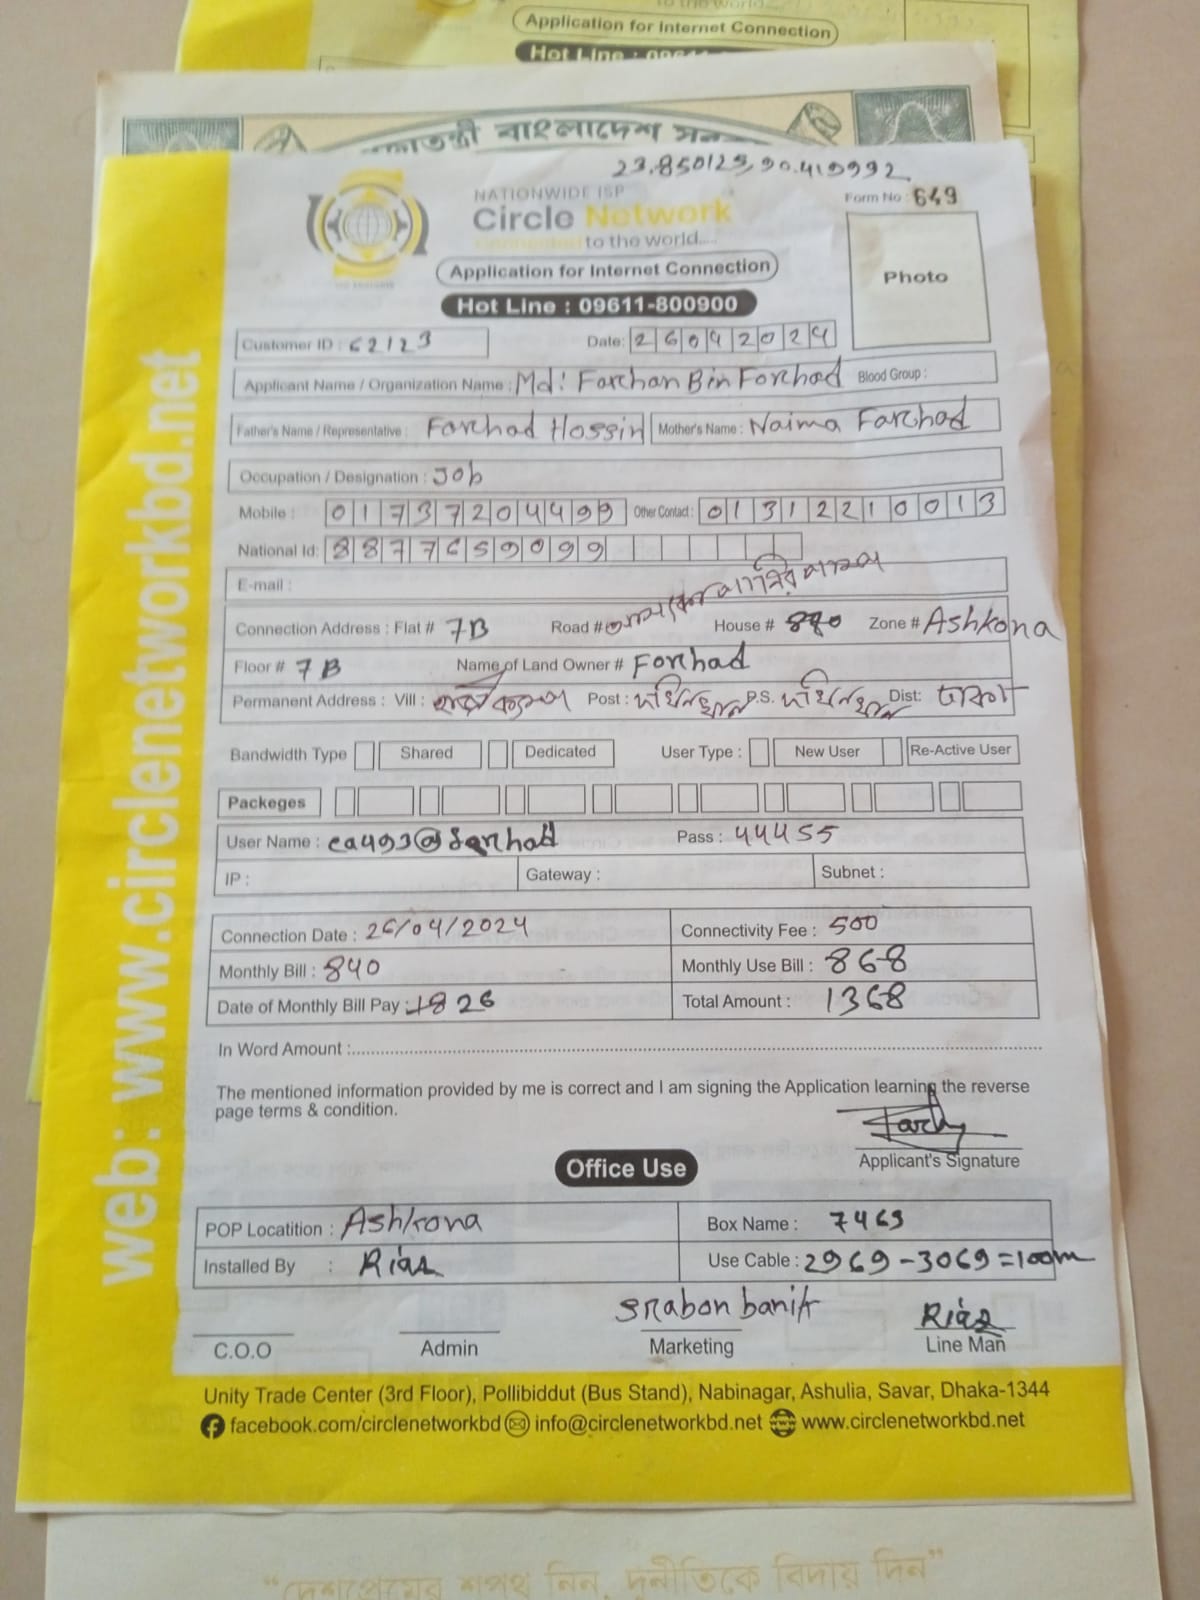 to the world
Application for Internet Connection
Hot Line : 09611
বাংলাদেশ
23.850129,90.419992
NATIONWIDE ISP
Circle Network
Connected to the world....
Form No : 649
Application for Internet Connection
Photo
Hot Line : 09611-800900
Customer ID : 62123 Date: 26042024
Applicant Name / Organization Name : Md: Farhan Bin Forhad Blood Group :
Father's Name / Representative : Farhad Hossin Mother's Name : Naima Farhad
Occupation / Designation : Job
Mobile : 01737204499 Other Contact : 01312210013
National Id: 8877659099
E-mail :
Connection Address : Flat # 7B Road # House # Zone # Ashkona
Floor # 7B Name of Land Owner # Forhad
Permanent Address : Vill : Post : দক্ষিনখান P.S. দক্ষিনখান Dist: ঢাকা
Bandwidth Type Shared Dedicated User Type : New User Re-Active User
Packeges
User Name : ca493@farhad Pass : 44455
IP : Gateway : Subnet :
Connection Date : 26/04/2024 Connectivity Fee : 500
Monthly Bill : 840 Monthly Use Bill : 868
Date of Monthly Bill Pay : 26 Total Amount : 1368
In Word Amount :
The mentioned information provided by me is correct and I am signing the Application learning the reverse
page terms & condition.
Applicant's Signature
Office Use
POP Locatition : Ashkona Box Name : 7469
Installed By : Riaz Use Cable : 2969-3069=100m
Srabon banik Riaz
C.O.O Admin Marketing Line Man
Unity Trade Center (3rd Floor), Pollibiddut (Bus Stand), Nabinagar, Ashulia, Savar, Dhaka-1344
facebook.com/circlenetworkbd info@circlenetworkbd.net www.circlenetworkbd.net
web: www.circlenetworkbd.net
“দেশপ্রেমের শপথ নিন, দুর্নীতিকে বিদায় দিন”